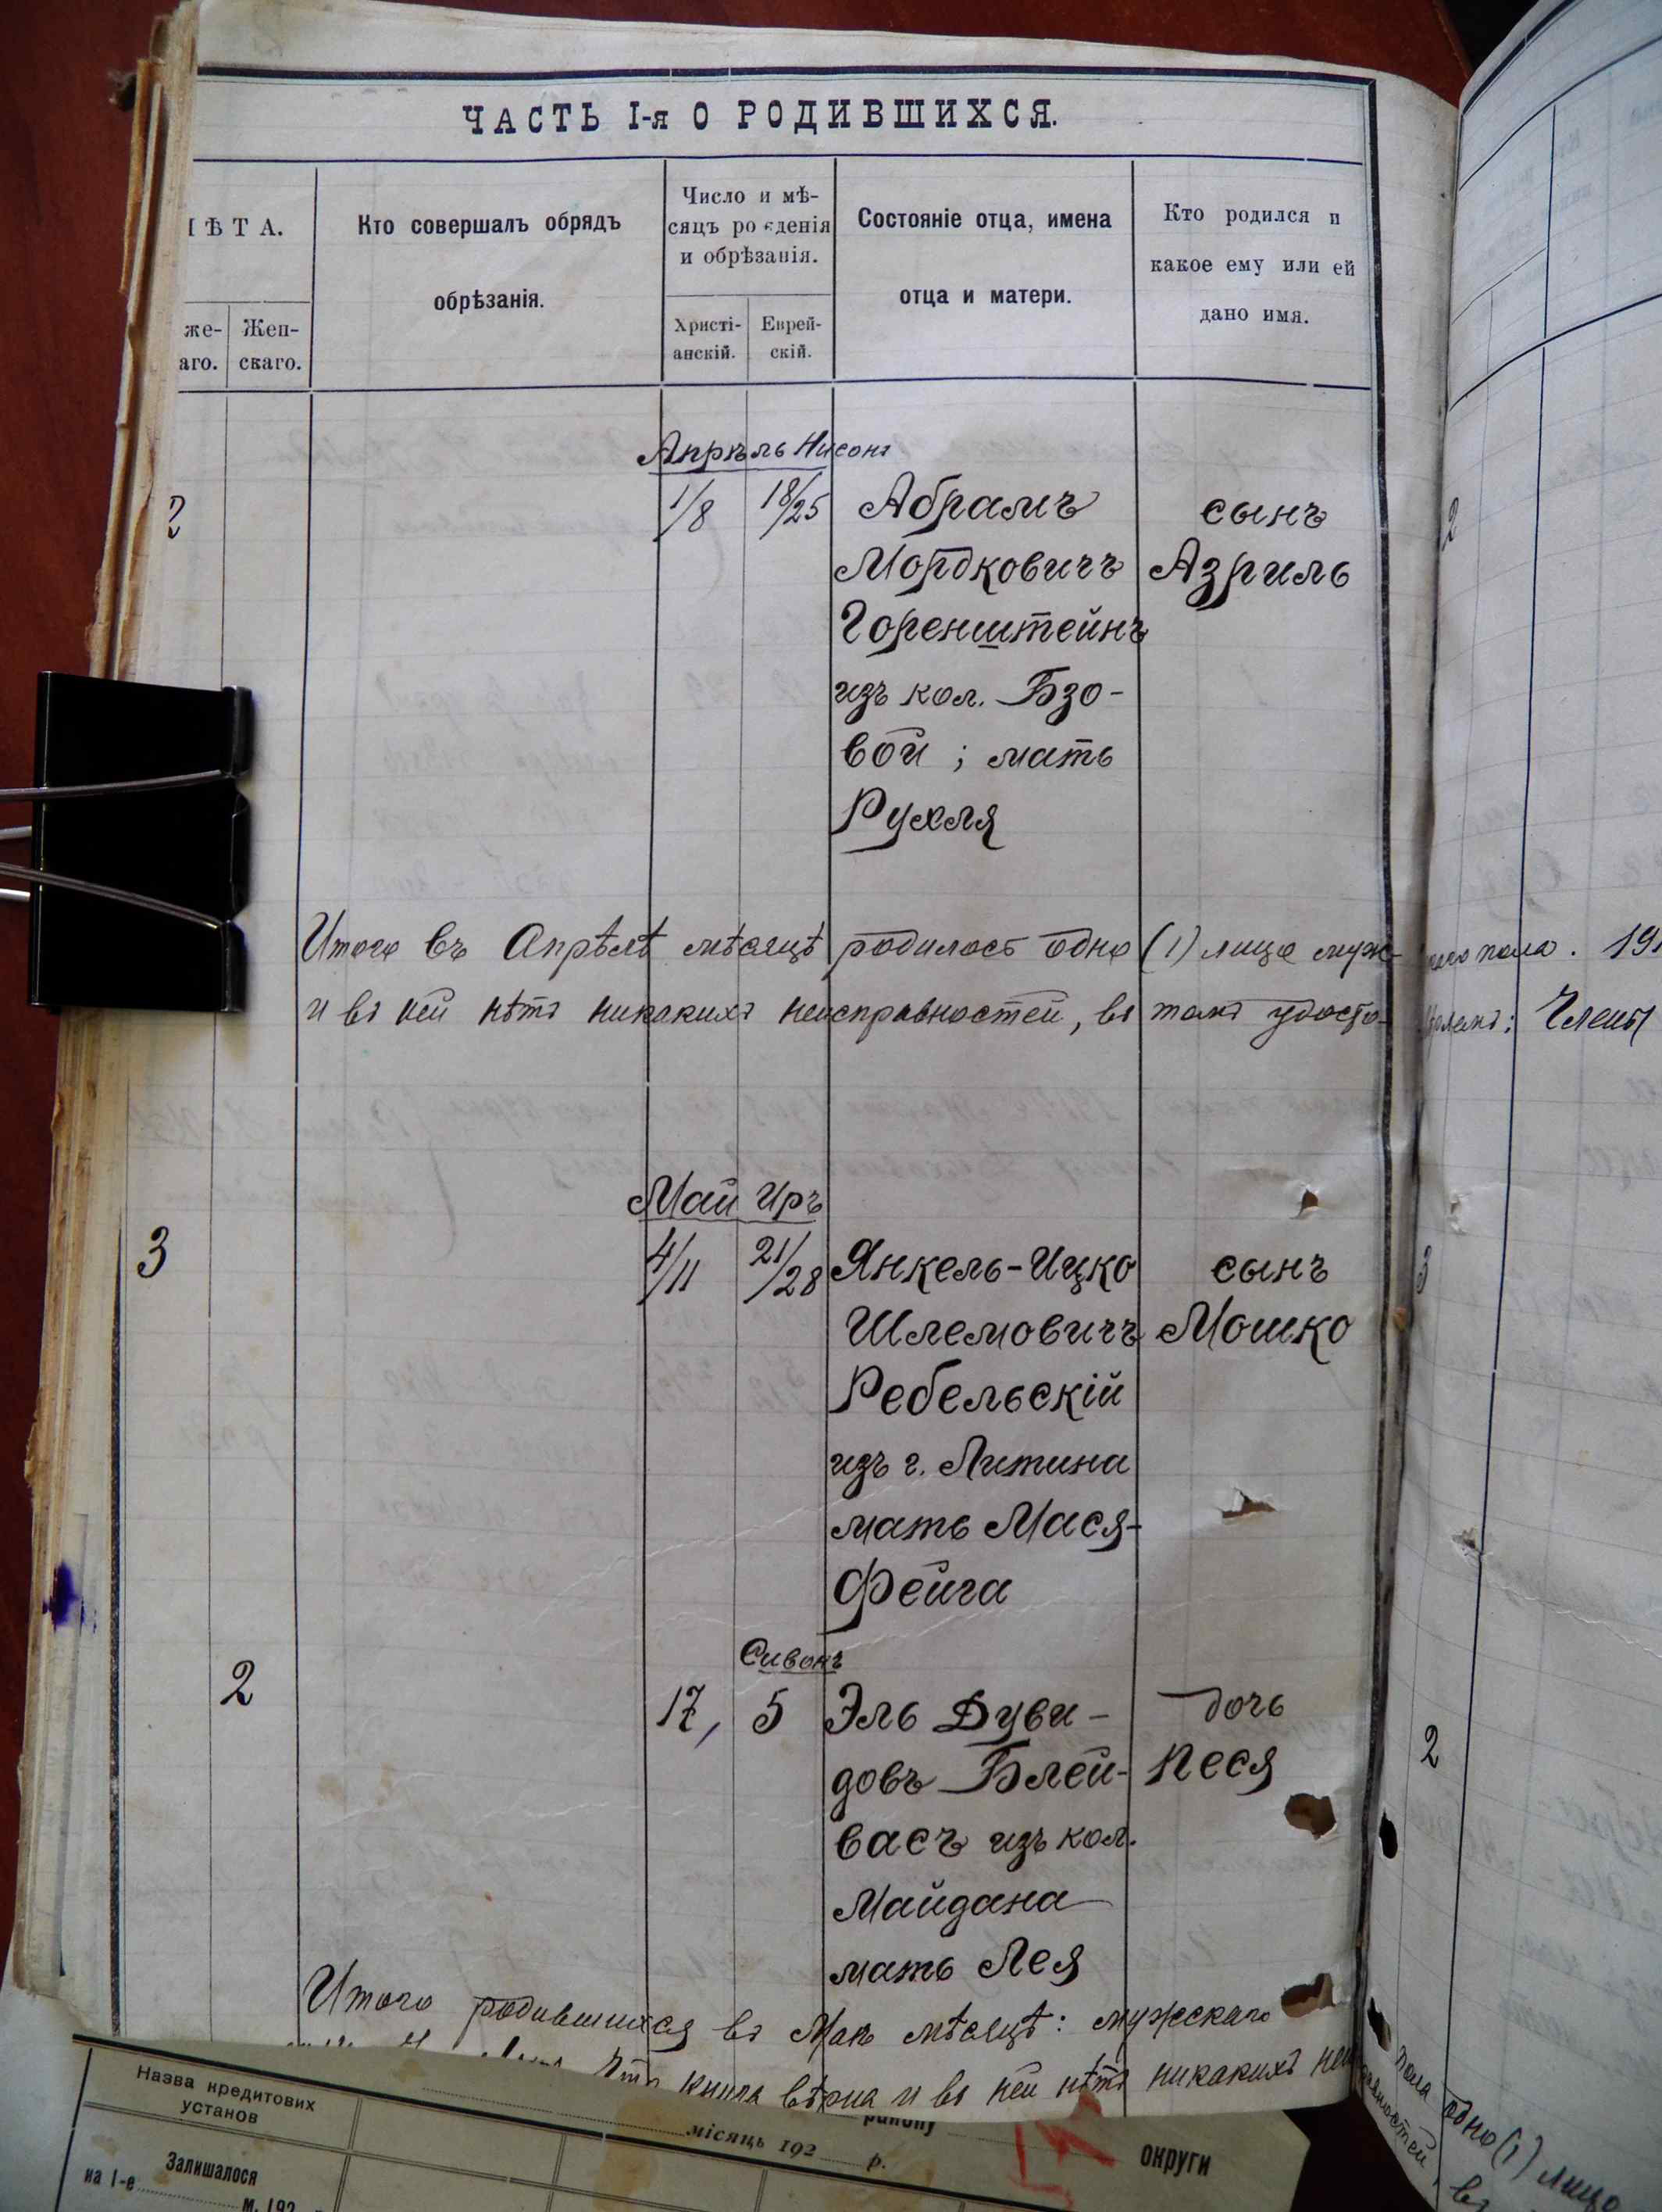 ЧАСТЬ I-я О РОДИВШИХСЯ.
ѢТА.
Кто совершалъ обрядъ
обрѣзанія.
Число и мѣ-
сяцъ рожденія
и обрѣзанія.
Состояніе отца, имена
отца и матери.
Кто родился и
какое ему или ей
дано имя.
же-
аго.
Жен-
скаго.
Христі-
анскій.
Еврей-
скій.
Апрѣль Нисонъ
2 1/8 18/25 Абрамъ сынъ 2
Мордковичъ Азриль
Горенштейнъ
изъ кол. Бзо-
вой ; мать
Рухля
Итого въ Апрѣлѣ мѣсяцѣ родилось одно (1) лицо муж- пола . 191
и въ ней нѣтъ никакихъ неисправностей, въ томъ удосто- Члены
Май Иръ
3 4/11 21/28 Янкель-Ицко сынъ 3
Шлемовичъ Мошко
Ребельскій
изъ г. Литина
мать Мася-
Фейга
Сивонъ
2 17, 5 Эль Дуви- дочь 2
довъ Блей- Песя
васъ изъ кол.
Майдана
мать Лея
Итого родившихся въ Маѣ мѣсяцѣ: мужскаго пола одно (1) лицо
что книга вѣрна и въ ней нѣтъ никакихъ
Назва кредитових
установ
району
місяць 192 р.
округи
Залишалося
на 1-е м. 192